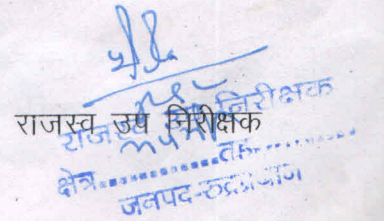 राजस्व उप निरीक्षक
राजस्व उप निरीक्षक
क्षेत्र............तह............
जनपद-रुद्रप्रयाग